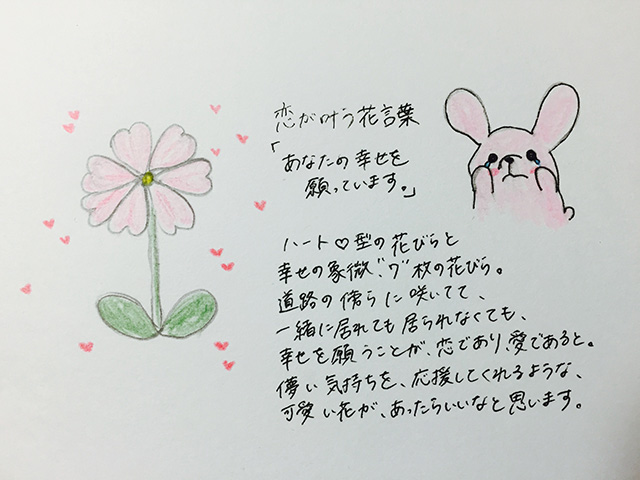 恋が叶う花言葉
「あなたの幸せを
願っています。」
ハート♡型の花びらと
幸せの象徴、"7"枚の花びら。
道路の傍らに咲いてて、
一緒に居れても居られなくても、
幸せを願うことが、恋であり、愛であると。
儚い気持ちを、応援してくれるような、
可愛い花が、あったらいいなと思います。